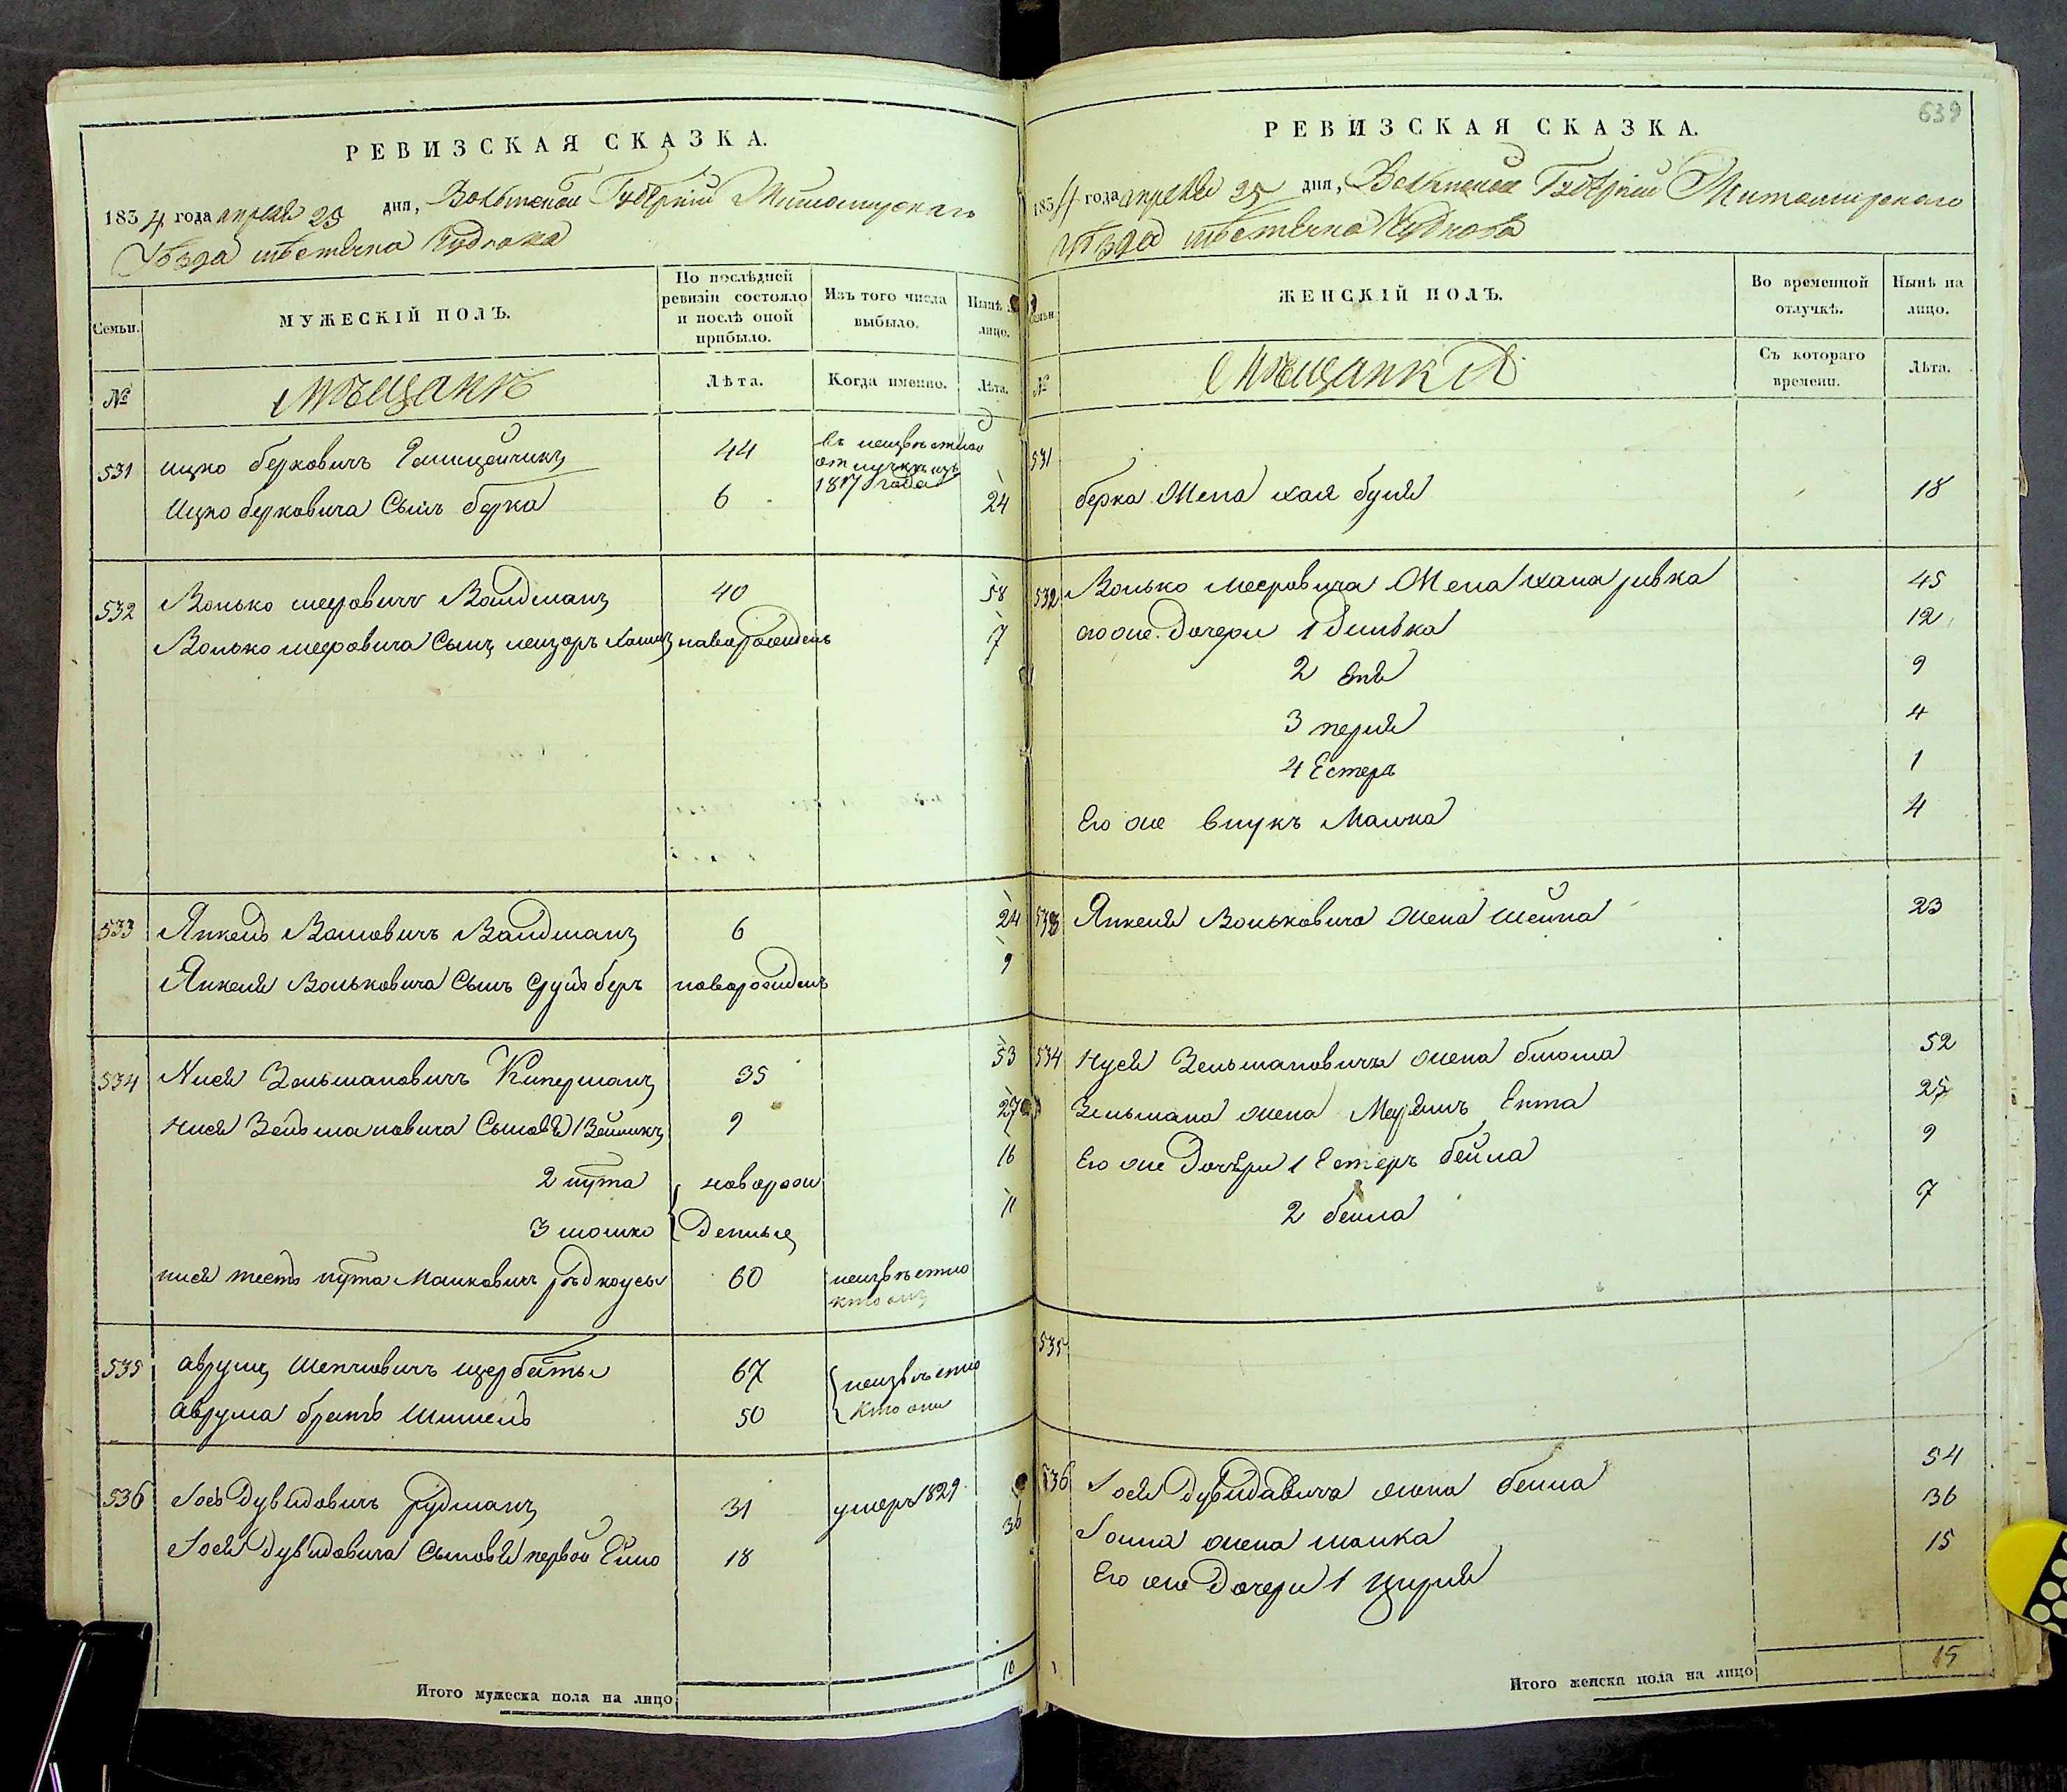 РЕВИЗСКАЯ СКАЗКА.
1834 года апреля 25 дня, Волынской Губерніи Житомирскаго
Уѣзда мѣстечка Чуднова
Семьи.
МУЖЕСКІЙ ПОЛЪ.
По послѣдней ревизіи состояло и послѣ оной прибыло.
Изъ того числа выбыло.
Нынѣ на лицо.
№
Мѣщанъ
Лѣта.
Когда именно.
Лѣта.
531 Ицко Берковичъ 44 въ неизвѣстной отлучкѣ изъ 1817 года
Ицко Берковича Сынъ Берко 6 24
532 Волько Мееровичъ Валдманъ 40 58
Волько Мееровича Сынъ Лейзоръ Хаимъ новорожденъ 7
533 Янкель Волковичъ Валдманъ 6 24
Янкеля Вольковича Сынъ Сруль Беръ новорожденъ 9
534 Нися Зельмановичъ Киперманъ 35 53
Нися Зельмановича Сыновья 1 Зельманъ 9 27
2 нута новорож 16
3 мошко денные 11
нися тесть нута Малковичъ 60 неизвѣстно кто онъ
535 Аврумъ щербаты 67 неизвѣстно
Аврума братъ Шимель 50 кто они
536 Іось Дувидовичъ Рудманъ 31 умеръ 1829
Іося Дувидовича Сыновья первой Ейно 18 36
Итого мужеска пола на лицо 10
639
РЕВИЗСКАЯ СКАЗКА.
1834 года апреля 25 дня, Волынской Губерніи Житомирскаго
Уѣзда мѣстечка Чуднова
Семьи
ЖЕНСКІЙ ПОЛЪ.
Во временной отлучкѣ.
Нынѣ на лицо.
№
Мѣщанка
Съ котораго времени.
Лѣта.
531
Берка Жена хая 18
532 Волько Мееровича Жена хана ривка 45
его же дочери 1 Динька 12
2 Еня 9
3 перля 4
4 Естеръ 1
Его же внукъ Малка 4
533 Янкеля Вольковича жена Шейна 23
534 Нуся Зельмановича жена блюма 52
Зельмана жена Ента 25
Его же Дочери 1 Естеръ бейла 9
2 бейла 7
535
536 Іося Дувидавича жена бейла 54
жена малка 36
Его же Дочери 1 Цирля 15
Итого женска пола на лицо 15